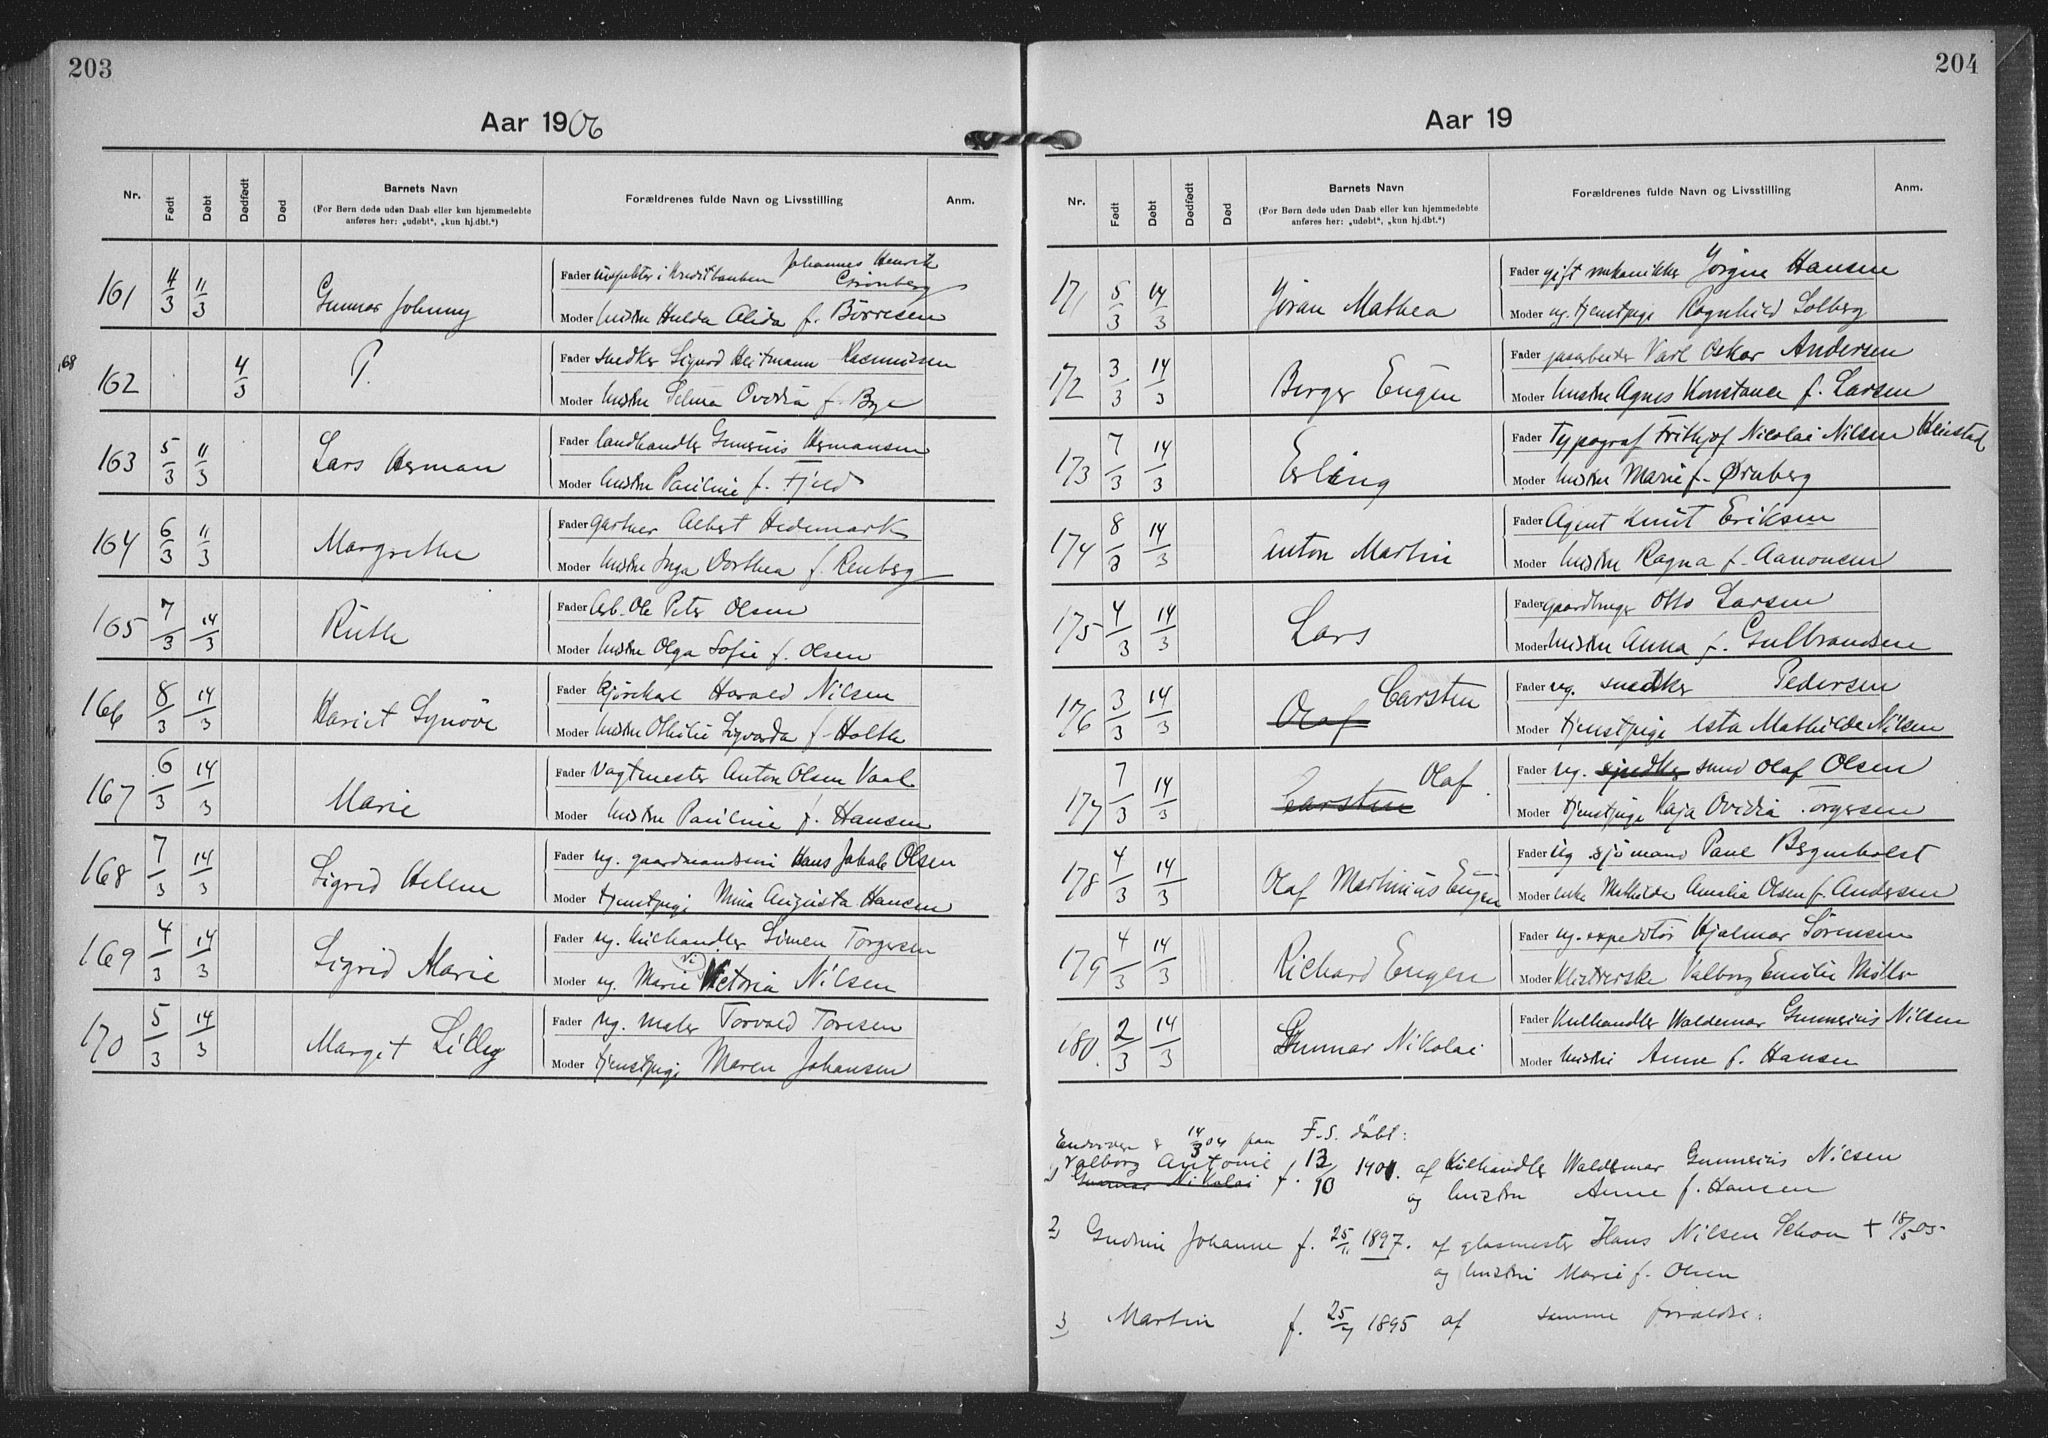 203
Aar 1906
Nr.
Født
Døbt
Dødfødt
Død
Barnets Navn
(For Børn døde uden Daab eller kun hjemmedøbte
anføres her: „udøbt“, „kun hj.dbt.“)
Forældrenes fulde Navn og Livsstilling
Anm.
161 4/3 11/3 Gunnar Johnny
Fader inspektør i Kreditbanken Johannes Henrik
Moder hustru Hulda Alida f. Børresen
68
162 4/3
Fader snedker Sigurd Heitmann Rasmussen
Moder hustru Selma Ovidia f. Bye
163 5/3 11/3 Lars Herman
Fader landhandler Gunerius Hermansen
Moder hustru Pauline f. Fjeld
164 6/3 11/3 Margrethe
Fader gartner Albert Hedemark
Moder hustru Inga Dorthea f. Renberg
165 7/3 14/3 Ruth
Fader Arb. Ole Peter Olsen
Moder hustru Olga Sofie f. Olsen
166 8/3 14/3 Hariet Synøve
Fader Kjørekar Harald Nilsen
Moder hustru Othilie Sigvarda f. Holth
167 6/3 14/3 Marie
Fader Vagtmester Anton Olsen Vaal
Moder hustru Pauline f. Hansen
168 7/3 14/3 Sigrid Helene
Fader ug. gaardmandssøn Hans Jakob Olsen
Moder tjenstpige Mina Augusta Hansen
169 4/3 14/3 Sigrid Marie
Fader ug. Kulhandler Simen Torgersen
Moder ug. Marie Victoria Nilsen
170 5/3 14/3 Margit Lilly
Fader ug. maler Torvald Toresen
Moder tjenstpige Maren Johansen
204
Aar 19
Nr.
Født
Døbt
Dødfødt
Død
Barnets Navn
(For Børn døde uden Daab eller kun hjemmedøbte
anføres her: „udøbt“, „kun hj.dbt.“)
Forældrenes fulde Navn og Livsstilling
Anm.
171 5/3 14/3 Jøran Mathea
Fader gift mekaniker Jørgen Hansen
Moder ug. tjenstpige Ragnhild Solberg
172 3/3 14/3 Birger Eugen
Fader gasarbeider Carl Oskar Andersen
Moder hustru Agnes Konstance f. Larsen
173 7/3 14/3 Erling
Fader Typograf Frithjof Nicolai Nilsen Heiestad
Moder hustru Marie f. Ørnberg
174 8/3 14/3 Anton Martin
Fader Agent Knut Eriksen
Moder hustru Ragna f. Aanonsen
175 4/3 14/3 Lars
Fader gaardbruger Otto Larsen
Moder hustru Anna f. Gulbrandsen
176 3/3 14/3 Olaf Carsten
Fader ug. snedker Pedersen
Moder tjenstpige Asta Mathilde Nilsen
177 7/3 14/3 Carsten Olaf
Fader ug. snedker smed Olaf Olsen
Moder tjenstpige Kaja Ovidia Torgersen
178 4/3 14/3 Olaf Martinius Eugen
Fader ug sjømand Paul Begnholst
Moder enke Mathilde Amalia Olsen f. Andersen
179 4/3 14/3 Richard Eugen
Fader ug. expeditør Hjalmar Sørensen
Moder Klistrerske Valborg Emilie Møller
180. 2/3 14/3 Gunnar Nikolai
Fader Kulhandler Waldemar Gunnerius Nilsen
Moder hustru Anne f. Hansen
Endvidere er 14/3 paa F.S. døbt:
1) Valborg Antonie Gunnar Nikolai f. 13/10 1901. af Kulhandler Waldemar Gunnerius Nilsen
og hustru Anne f. Hansen
2) Gudrun Johanne f. 25/11 1897. af glasmester Hans Nilsen Schou + 18/5 05
og hustru Marie f. Olsen
3) Martin f. 25/ 1895 af samme forældre: